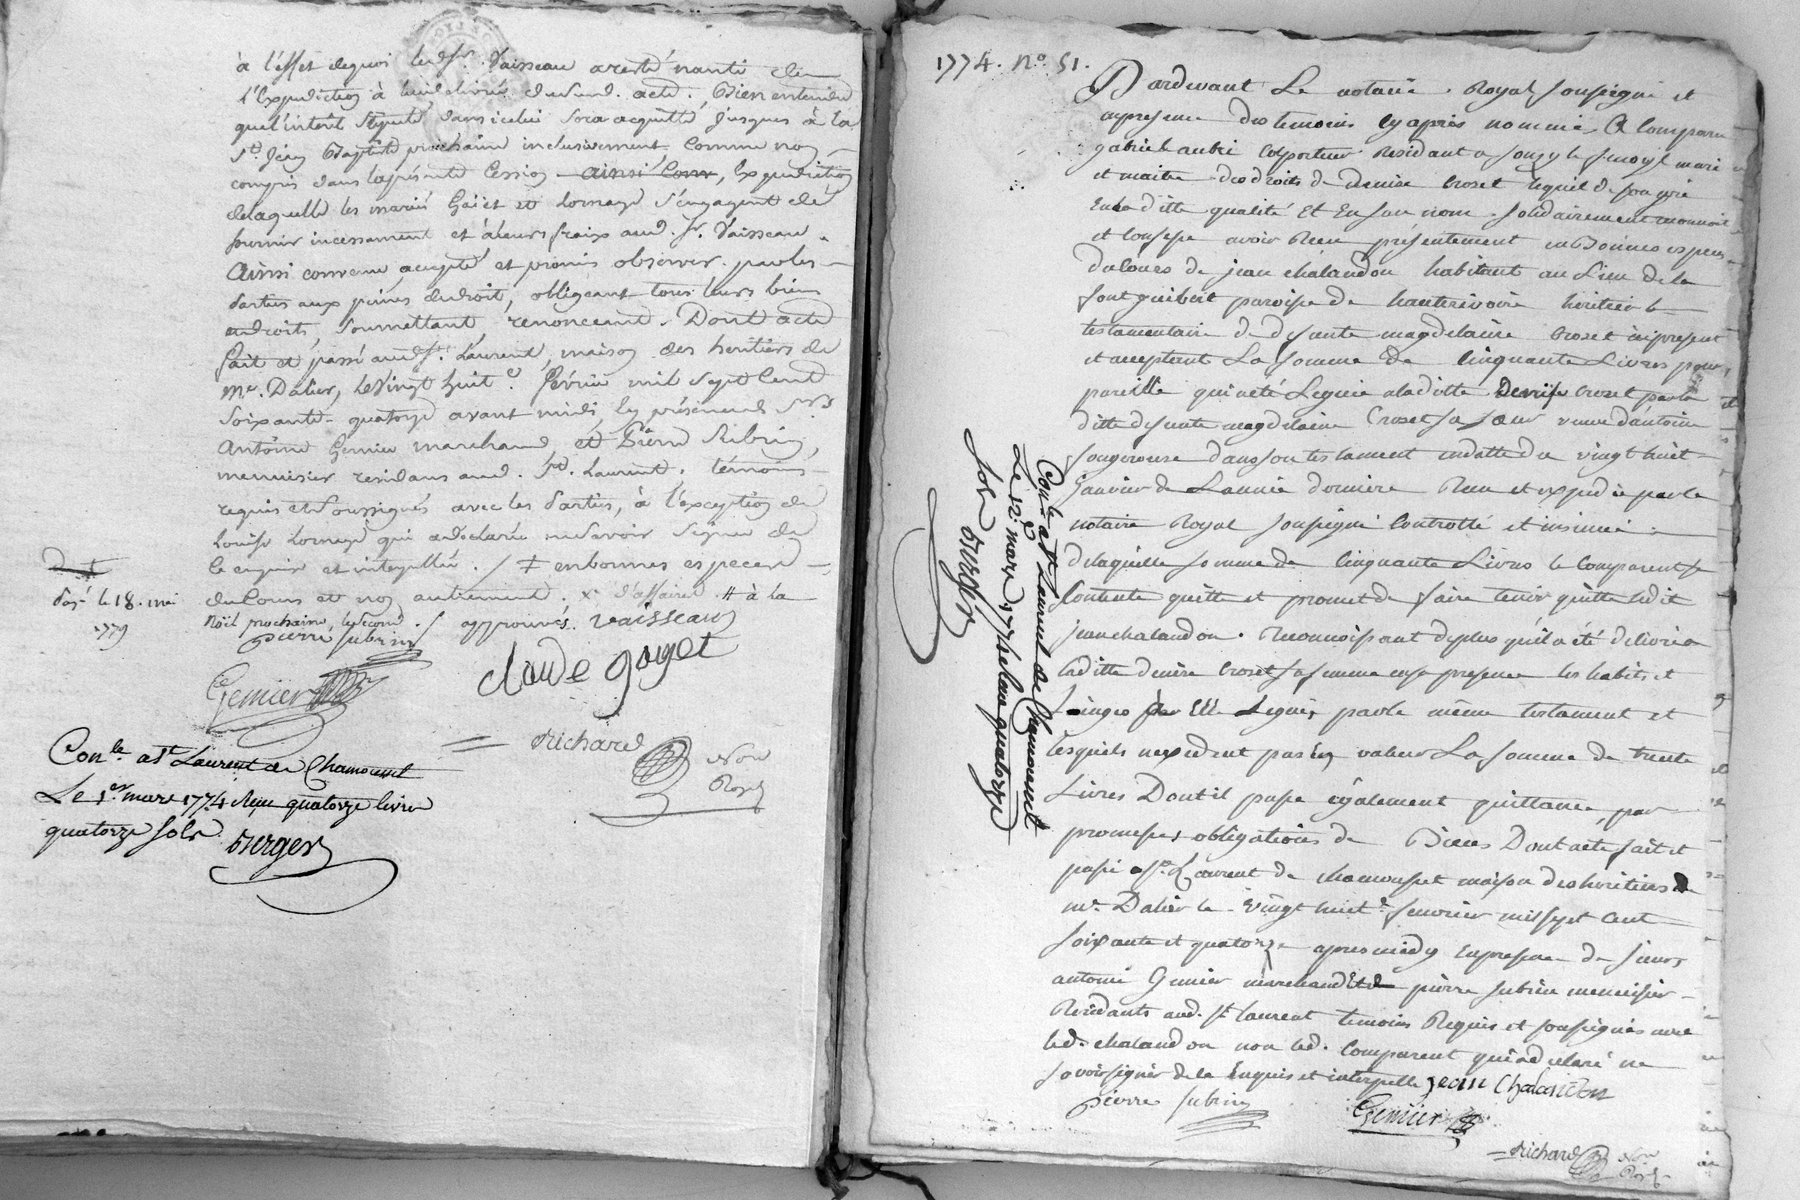 à l'effet de quoi led. Sr. Vaisseau a resté nanti de
l'Expedition à lui delivrée dud. acte, Bien entendu
que l'intérêt stipulé dans icelui sera acquitté jusques à la
St. Jean Baptiste prochaine inclusivement comme non
compris dans la présente Cession ainsi Conv, Expedition
de laquelle les mariés Goiet et Lornage s'engagent de
fournir incessament et à leurs fraix aud. Sr. Vaisseau.
Ainsi convenu accepté et promis observer par les
Parties aux peines de droit, obligeant tous leurs biens
et droits soumettant, renonceant. Dont acte
fait et passé aud. St. Laurent, maison des heritiers de
Me. Dalier, le Vingt huit e. fevrier mil sept Cent
soixante-quatorze avant midi, en présence de Srs
Antoine Gernier marchand et Pierre Subrin,
menuisier residans aud. St. Laurent, témoins
requis et soussignés avec les Parties, à l'exception de
Louise Lornage qui a declaré ne savoir signer de
ce enquise et interpellée. / ‡ en bonnes especes
du Cours et non autrement. x d'affaires # à la
Noël prochaine, / approuvés. Vaisseau
Pay. le 18. mai
1779
pierre subrin
claude goyet
Gernier
Richard Not. Roy.
Con.le a St Laurent de Chamousset
Le 1er. mars 1774 Reçu quatorze livres
quatorze sols
Burger
1774. No. 51.
Pardevant Le notaire Royal soussigné et
en presence des temoins cy après nommés, A Comparu
gabriel aubri colporteur Residant a souzy le mari
et maitre des droits de Denise Croset lequel de son gré
En la ditte qualité Et En son nom solidairement reconnoit
et confesse avoir Recu présentement en Bonnes especes
du Cours de jean chalandon habitant au Lieu de la
font guibert paroisse de hauterivoire heritier
testamentaire de defunte magdelaine Croset ici present
et acceptant La somme de Cinquante Livres pour
pareille qui a eté Leguée a la ditte Denise Croset par la
ditte defunte magdelaine Croset sa sœur veuve d'antoine
fougerouse dans son testament en datte du vingt huit
janvier de Lannée derniere Recu et expedié par le
notaire Royal soussigné Controllé et insinué
de laquelle somme de Cinquante Livres le Comparent se
Contente quitte et promet de faire tenir quitte ledit
jean chalandon. Reconnoissant de plus qu'il a été delivré a
laditte denise Croset sa femme en sa presence les habits et
Linges par Elle Legués par le même testament et
lesquels n'excedent pas En valeur La somme de trente
Livres Dont il passe également quittance, par
promesses obligations de Biens Dont acte fait et
passé a St. Laurent de chamousset maison des heritiers de
me. Dalier le vingt huit e. fevrier mil sept Cent
soixante et quatorze apres midy En presence de sieurs
antoine Gernier marchand Et pierre subrin menuisier
Residants aud. St laurent temoins Requis et soussignés avec
led. chalandon non led. Comparent qui a declaré ne
savoir signer de ce Enquis et interpellé jean Chalandon
pierre subrin
Gernier
Richard Not. Roy.
Con.le a St Laurent de Chamousset
Le 12. mars 1774 Reçu quatorze
sols Burger